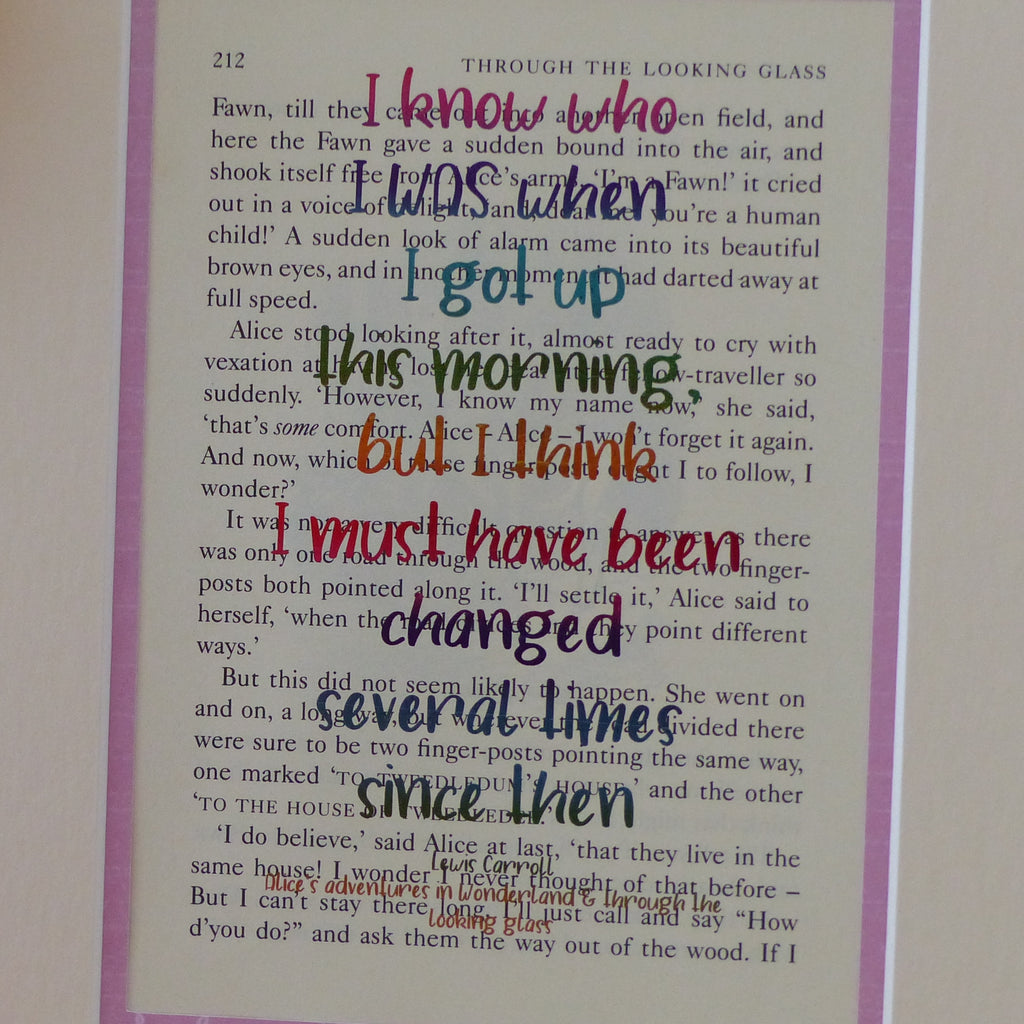 212 THROUGH THE LOOKING GLASS
Fawn, till they came out into another open field, and
here the Fawn gave a sudden bound into the air, and
shook itself free from Alice's arm. 'I'm a Fawn!' it cried
out in a voice of delight, 'and, dear me! you're a human
child!' A sudden look of alarm came into its beautiful
brown eyes, and in another moment it had darted away at
full speed.
Alice stood looking after it, almost ready to cry with
vexation at having lost her dear little fellow-traveller so
suddenly. 'However, I know my name now,' she said,
'that's some comfort. Alice – Alice – I won't forget it again.
And now, which of these finger-posts ought I to follow, I
wonder?'
It was not a very difficult question to answer, as there
was only one road through the wood, and the two finger-
posts both pointed along it. 'I'll settle it,' Alice said to
herself, 'when the road divides and they point different
ways.'
But this did not seem likely to happen. She went on
and on, a long way, but wherever the road divided there
were sure to be two finger-posts pointing the same way,
one marked 'TO TWEEDLEDUM'S HOUSE,' and the other
'TO THE HOUSE OF TWEEDLEDEE.'
'I do believe,' said Alice at last, 'that they live in the
same house! I wonder I never thought of that before –
But I can't stay there long. I'll just call and say "How
d'you do?" and ask them the way out of the wood. If I
I know who
I was when
I got up
this morning,
but I think
I must have been
changed
several times
since then
Lewis Carroll
Alice's adventures in Wonderland & through the
looking glass